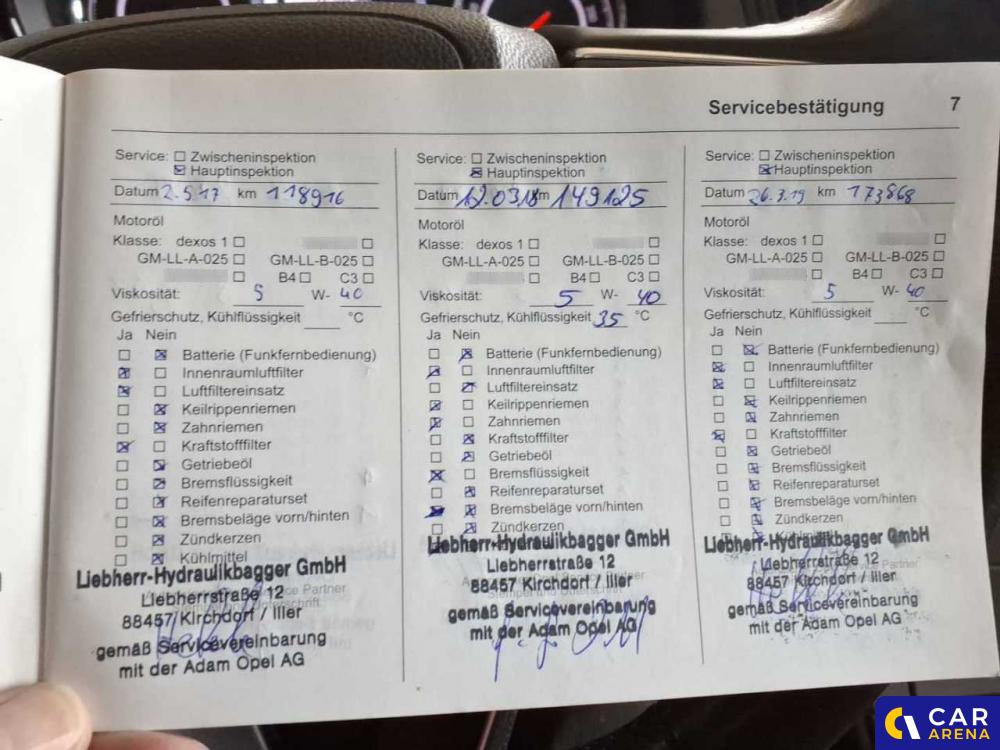 Servicebestätigung 7
Service: Zwischeninspektion
Hauptinspektion
Datum 2.5.17 km 118916
Motoröl
Klasse: dexos 1
GM-LL-A-025 GM-LL-B-025
B4 C3
Viskosität: 5 W- 40
Gefrierschutz, Kühlflüssigkeit °C
Ja Nein
Batterie (Funkfernbedienung)
Innenraumluftfilter
Luftfiltereinsatz
Keilrippenriemen
Zahnriemen
Kraftstofffilter
Getriebeöl
Bremsflüssigkeit
Reifenreparaturset
Bremsbeläge vorn/hinten
Zündkerzen
Kühlmittel
Liebherr-Hydraulikbagger GmbH
Liebherrstraße 12
88457 Kirchdorf / Iller
gemäß Servicevereinbarung
mit der Adam Opel AG
Service: Zwischeninspektion
Hauptinspektion
Datum 12.03.18 km 149125
Motoröl
Klasse: dexos 1
GM-LL-A-025 GM-LL-B-025
B4 C3
Viskosität: 5 W- 40
Gefrierschutz, Kühlflüssigkeit 35 °C
Ja Nein
Batterie (Funkfernbedienung)
Innenraumluftfilter
Luftfiltereinsatz
Keilrippenriemen
Zahnriemen
Kraftstofffilter
Getriebeöl
Bremsflüssigkeit
Reifenreparaturset
Bremsbeläge vorn/hinten
Zündkerzen
Liebherr-Hydraulikbagger GmbH
Liebherrstraße 12
88457 Kirchdorf / Iller
gemäß Servicevereinbarung
mit der Adam Opel AG
Service: Zwischeninspektion
Hauptinspektion
Datum 26.3.19 km 173868
Motoröl
Klasse: dexos 1
GM-LL-A-025 GM-LL-B-025
B4 C3
Viskosität: 5 W- 40
Gefrierschutz, Kühlflüssigkeit °C
Ja Nein
Batterie (Funkfernbedienung)
Innenraumluftfilter
Luftfiltereinsatz
Keilrippenriemen
Zahnriemen
Kraftstofffilter
Getriebeöl
Bremsflüssigkeit
Reifenreparaturset
Bremsbeläge vorn/hinten
Zündkerzen
Liebherr-Hydraulikbagger GmbH
Liebherrstraße 12
88457 Kirchdorf / Iller
gemäß Servicevereinbarung
mit der Adam Opel AG
CAR
ARENA